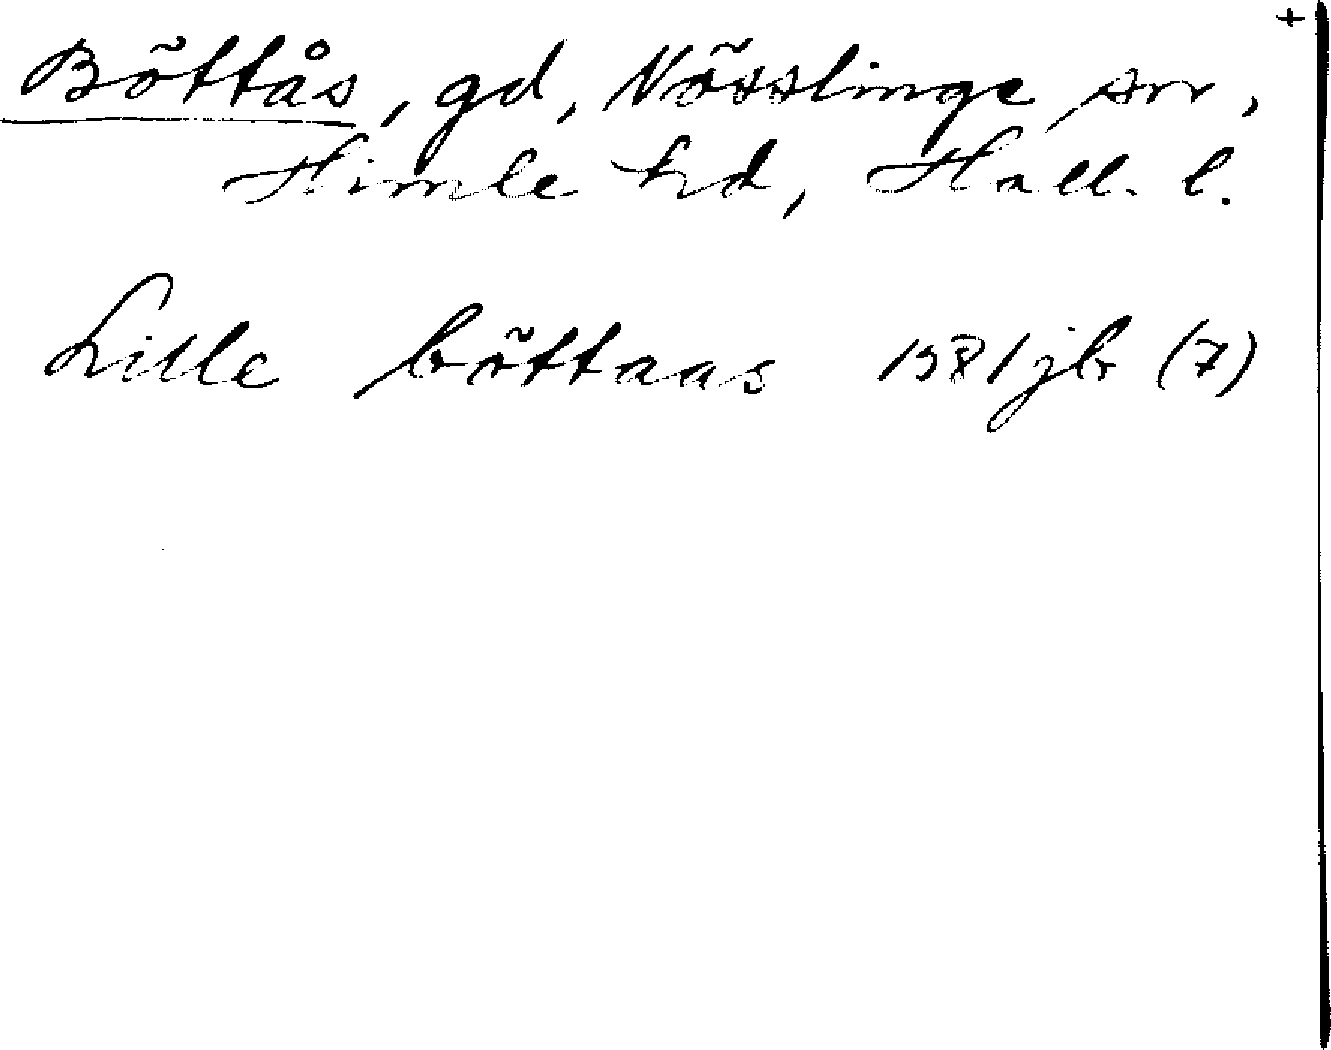 +
Böttås, gd, Nösslinge sn,
Himle hd, Hall. l.
Lille böttaas 1581 jb (7)